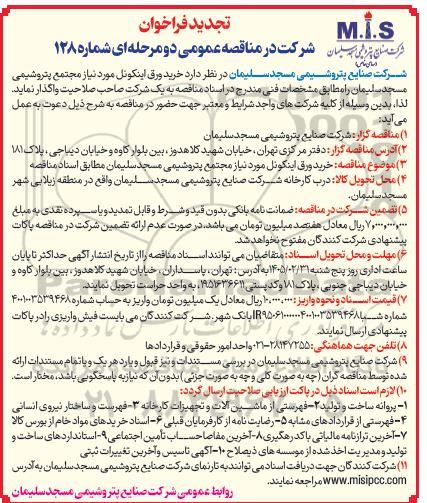 تجدید فراخوان
شرکت در مناقصه عمومی دو مرحله ای شماره ۱۲۸
M.I.S
شرکت صنایع پتروشیمی مسجدسلیمان
(سهامی خاص)
شرکت صنایع پتروشیمی مسجدسلیمان در نظر دارد خرید ورق اینکونل مورد نیاز مجتمع پتروشیمی
مسجدسلیمان را مطابق مشخصات فنی مندرج در اسناد مناقصه به یک شرکت صاحب صلاحیت واگذار نماید.
لذا، بدین وسیله از کلیه شرکت های واجد شرایط و معتبر جهت حضور در مناقصه به شرح ذیل دعوت به عمل
می آید:
۱) مناقصه گزار: شرکت صنایع پتروشیمی مسجدسلیمان
۲) آدرس مناقصه گزار: دفتر مرکزی تهران، خیابان شهید کلاهدوز، بین بلوار کاوه و خیابان دیباجی، پلاک ۱۸۱
۳) موضوع مناقصه: خرید ورق اینکونل مورد نیاز مجتمع پتروشیمی مسجدسلیمان مطابق اسناد مناقصه
۴) محل تحویل کالا: درب کارخانه شرکت صنایع پتروشیمی مسجدسلیمان واقع در منطقه زیلایی شهر
مسجدسلیمان.
۵) تضمین شرکت در مناقصه: ضمانت نامه بانکی بدون قید و شرط و قابل تمدید و یا سپرده نقدی به مبلغ
۷,۷۰۰,۰۰۰,۰۰۰ ریال معادل هفتصد میلیون تومان می باشد. در صورت عدم ارائه تضمین شرکت در مناقصه پاکات
پیشنهادی شرکت کنندگان مفتوح نخواهد شد.
۶) مهلت و محل تحویل اسناد: متقاضیان می توانند اسناد مناقصه را از تاریخ انتشار آگهی حداکثر تا پایان
ساعت اداری روز پنج شنبه ۱۴۰۵/۰۲/۳۱ به آدرس: تهران، پاسداران، خیابان شهید کلاهدوز، بین بلوار کاوه و
خیابان دیباجی جنوبی، پلاک ۱۸۱ و کدپستی ۱۹۵۱۶۳۶۶۱۱، به واحد حراست تحویل نمایند.
۷) قیمت اسناد و نحوه واریز: ۱۰,۰۰۰,۰۰۰ ریال معادل یک میلیون تومان واریز به حساب شماره ۴۰۰۱۰۰۳۵۳۹۴۶۸
شماره شبا بانک شهر. شرکت کنندگان می بایست فیش واریزی را در پاکات
پیشنهادی ارسال نمایند.
۸) تلفن جهت هماهنگی: ۲۸۱۴۷۲۵۵-۰۲۱ واحد امور حقوقی و قراردادها
۹) شرکت صنایع پتروشیمی مسجدسلیمان در بررسی مستندات و نیز قبول و یا رد هر یک و یا تمام مستندات ارائه
شده توسط مناقصه گران (چه به صورت کلی و چه به صورت جزئی) بدون آن که نیاز به پاسخگویی باشد، مختار است.
۱۰) لازم است اسناد ذیل در پاکت ارزیابی صلاحیت ارسال گردد:
۱- پروانه ساخت و تولید ۲- فهرستی از ماشین آلات و تجهیزات کارخانه ۳- فهرست و ساختار نیروی انسانی
۴- فهرستی از قراردادهای مشابه ۵- رضایت نامه از کارفرمایان قبلی ۶- اسناد خریدهای مواد خام از بورس کالا
۷- آخرین ترازنامه مالیاتی با کد رهگیری ۸- آخرین مفاصاحساب تأمین اجتماعی ۹- استانداردهای ساخت و
تولید و مدیریت اخذ شده از موسسه های ذیصلاح ۱۰- آگهی تاسیس و آخرین تغییرات ثبتی
۱۱) شرکت کنندگان جهت دریافت اسناد می توانند به تارنمای شرکت صنایع پتروشیمی مسجدسلیمان به آدرس
www.misipcc.com مراجعه نمایند.
روابط عمومی شرکت صنایع پتروشیمی مسجدسلیمان